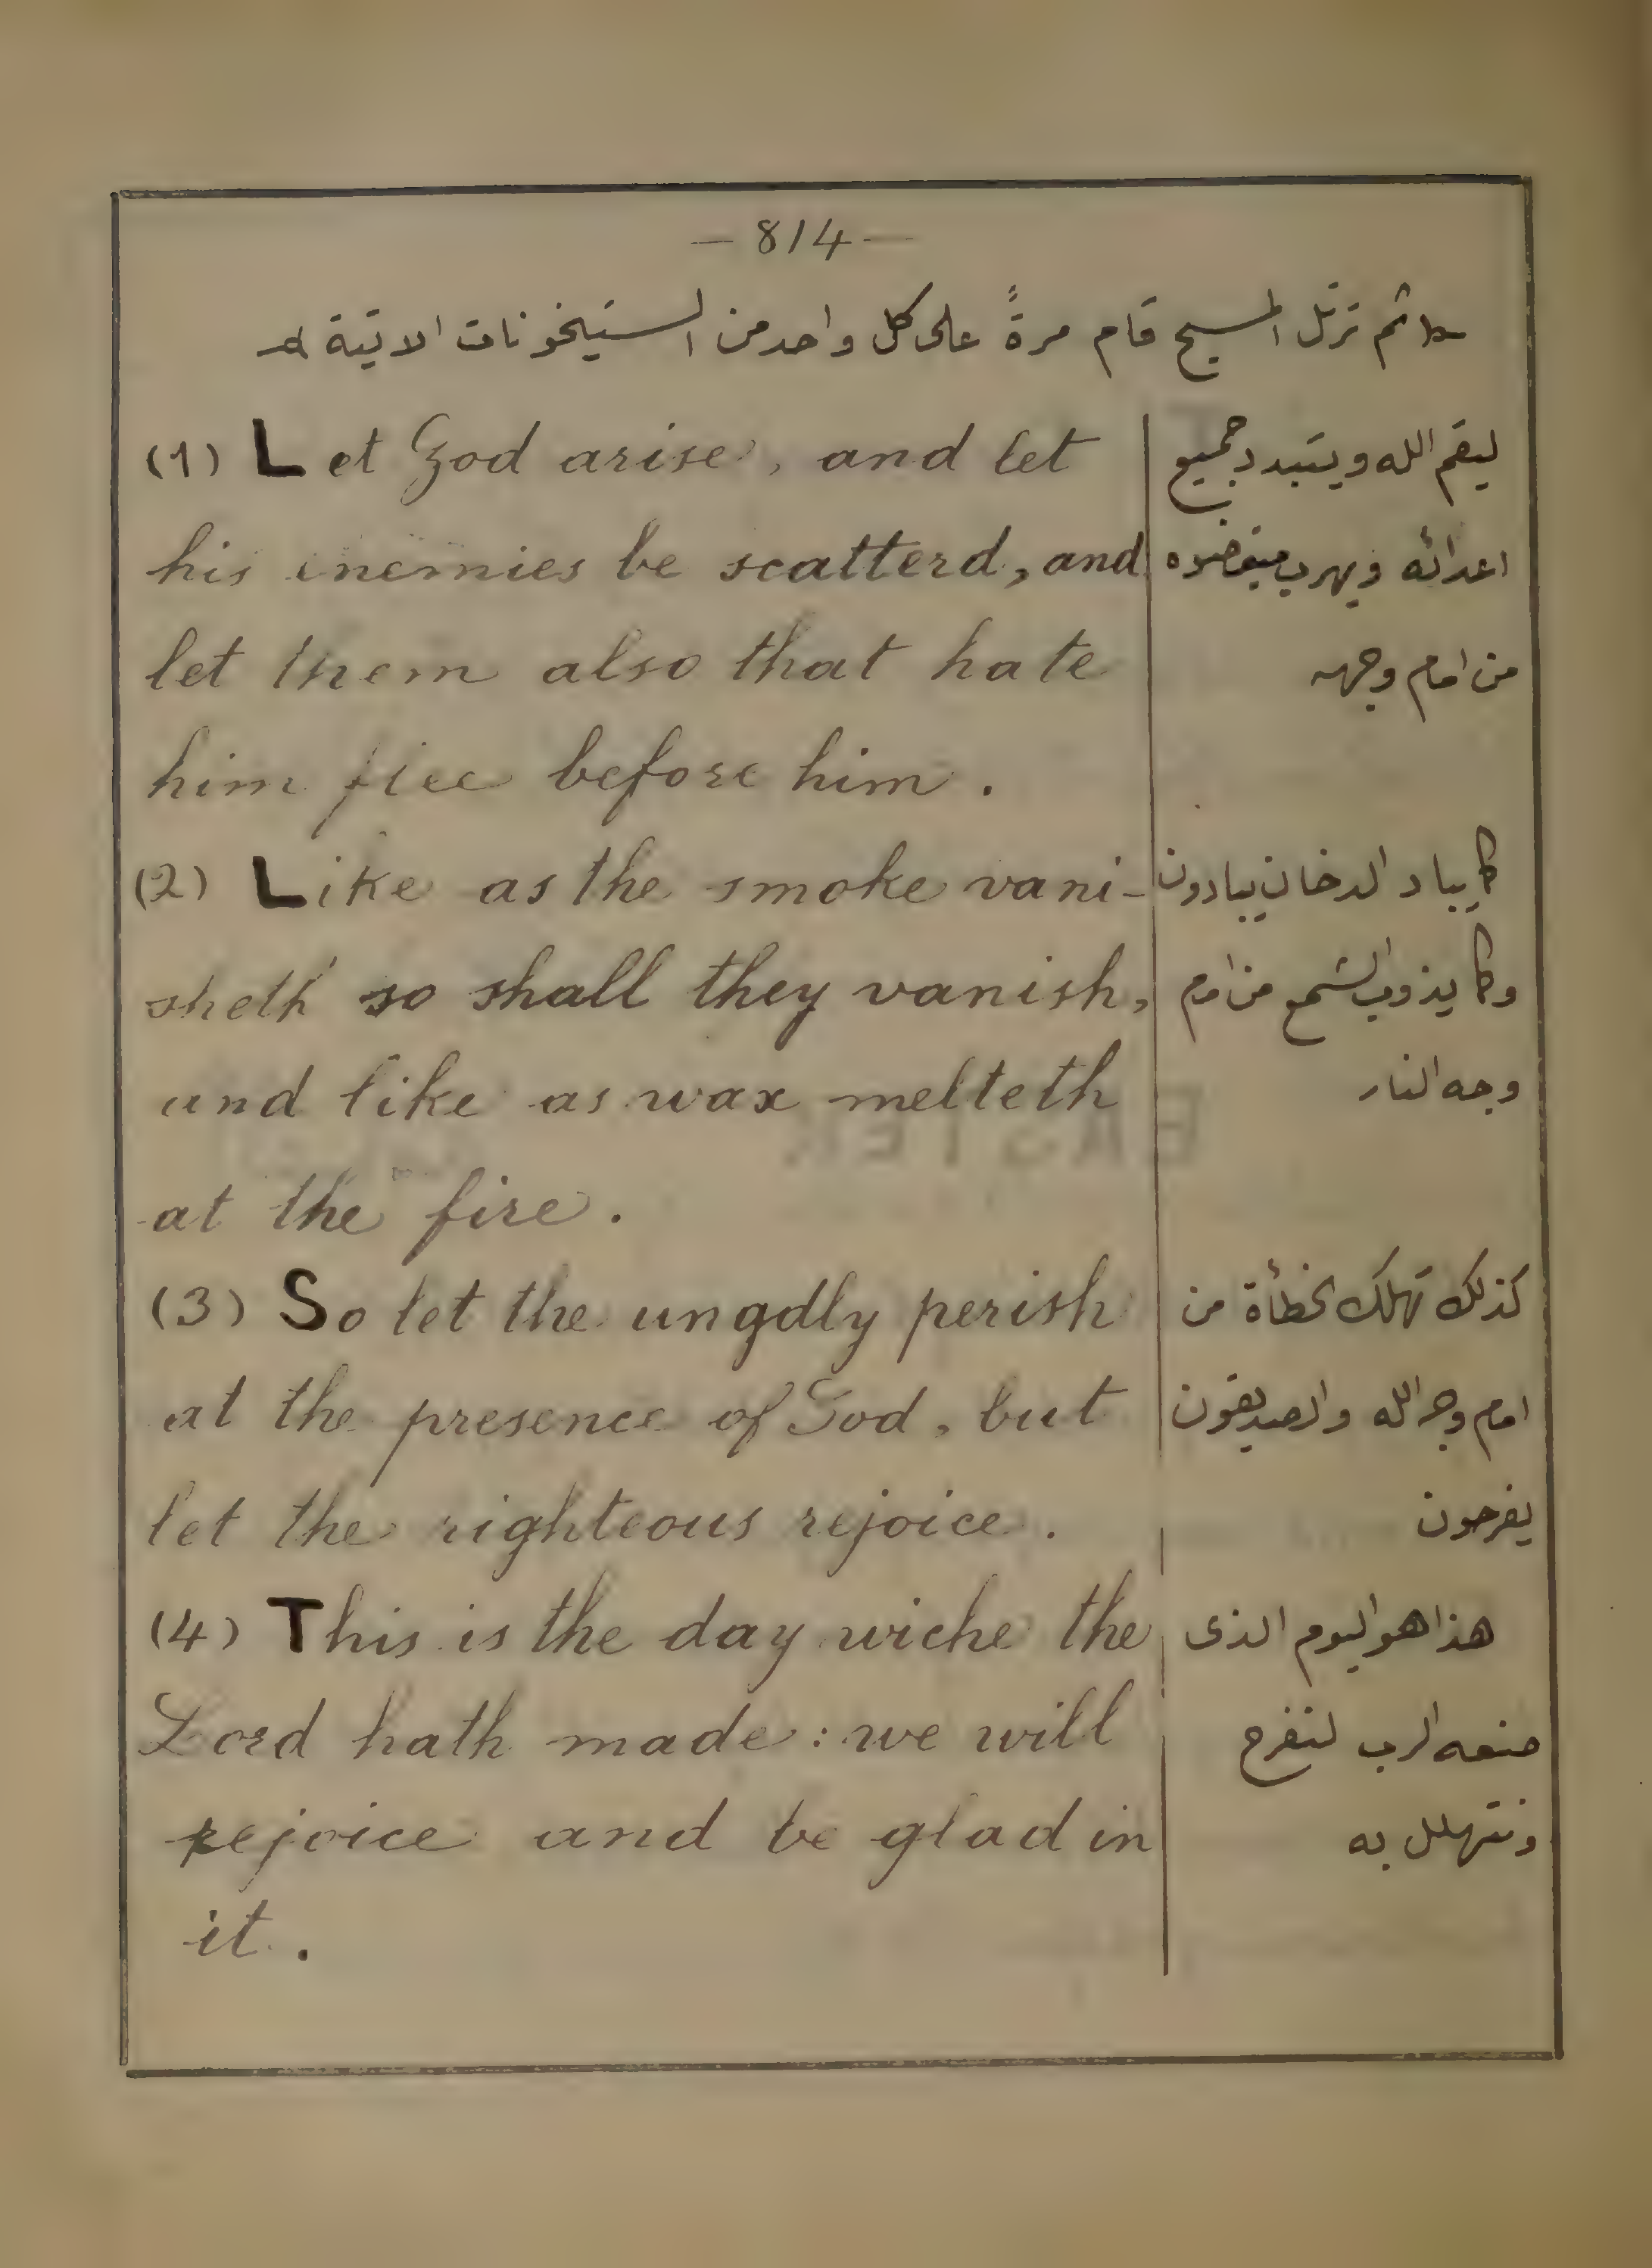 — 814 —
ثم ترتل المسيح قام مرةً على كل واحد من الستيخونات الاتية
(1) Let God arise, and let
his enemies be scatterd, and
let them also that hate
him flee before him.
ليقم الله ويتبدد جميع
اعدائه ويهرب مبغضوه
من امام وجهه
(2) Like as the smoke vani-
sheth so shall they vanish,
and like as wax melteth
at the fire.
كما يباد الدخان يبادون
وكما يذوب الشمع من امام
وجه النار
(3) So let the ungdly perish
at the presence of God, but
let the righteous rejoice.
كذلك تهلك الخطأة من
امام وجه الله والصديقون
يفرحون
(4) This is the day wiche the
Lord hath made: we will
rejoice and be glad in
it.
هذا هو اليوم الذى
صنعه الرب لنفرح
ونتهلل به